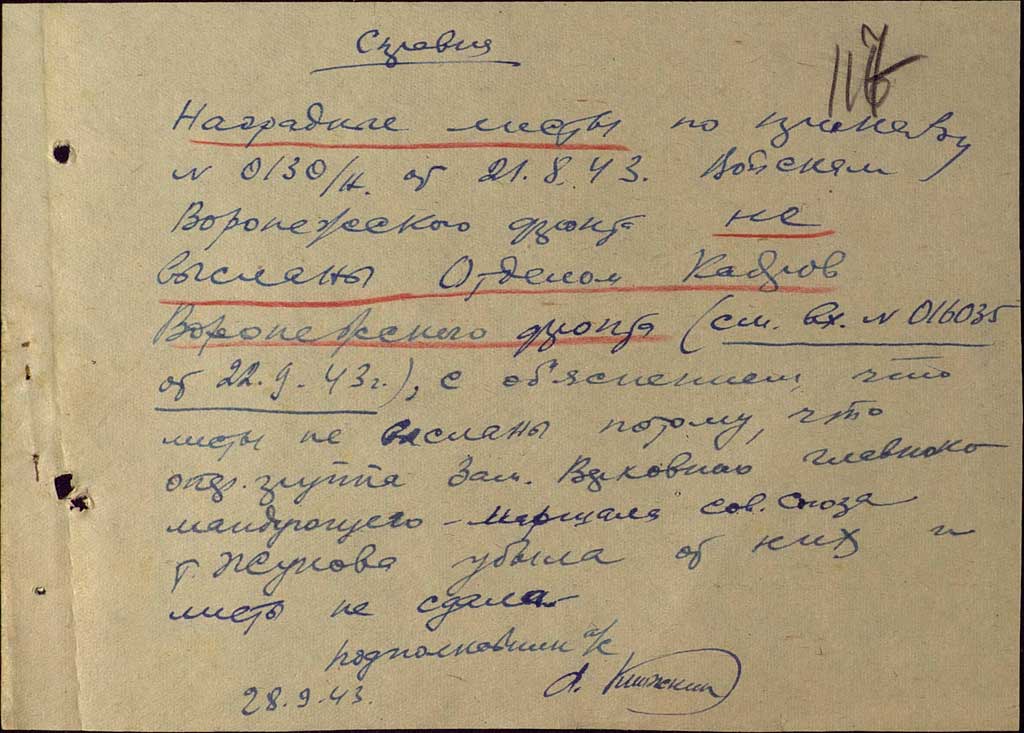 Справка
117
Наградные листы по приказу
N 0130/н. от 21.8.43. Войскам
Воронежского фронта не
высланы Отделом Кадров
Воронежского фронта (см. вх. N 016035
от 22.9.43г.), с объяснением, что
листы не высланы потому, что
опер. группа Зам. Верховного главноко
мандующего - Маршала Сов. Союза
т. Жукова убыла от них и
листы не сдала
подполковник а/с
28.9.43.